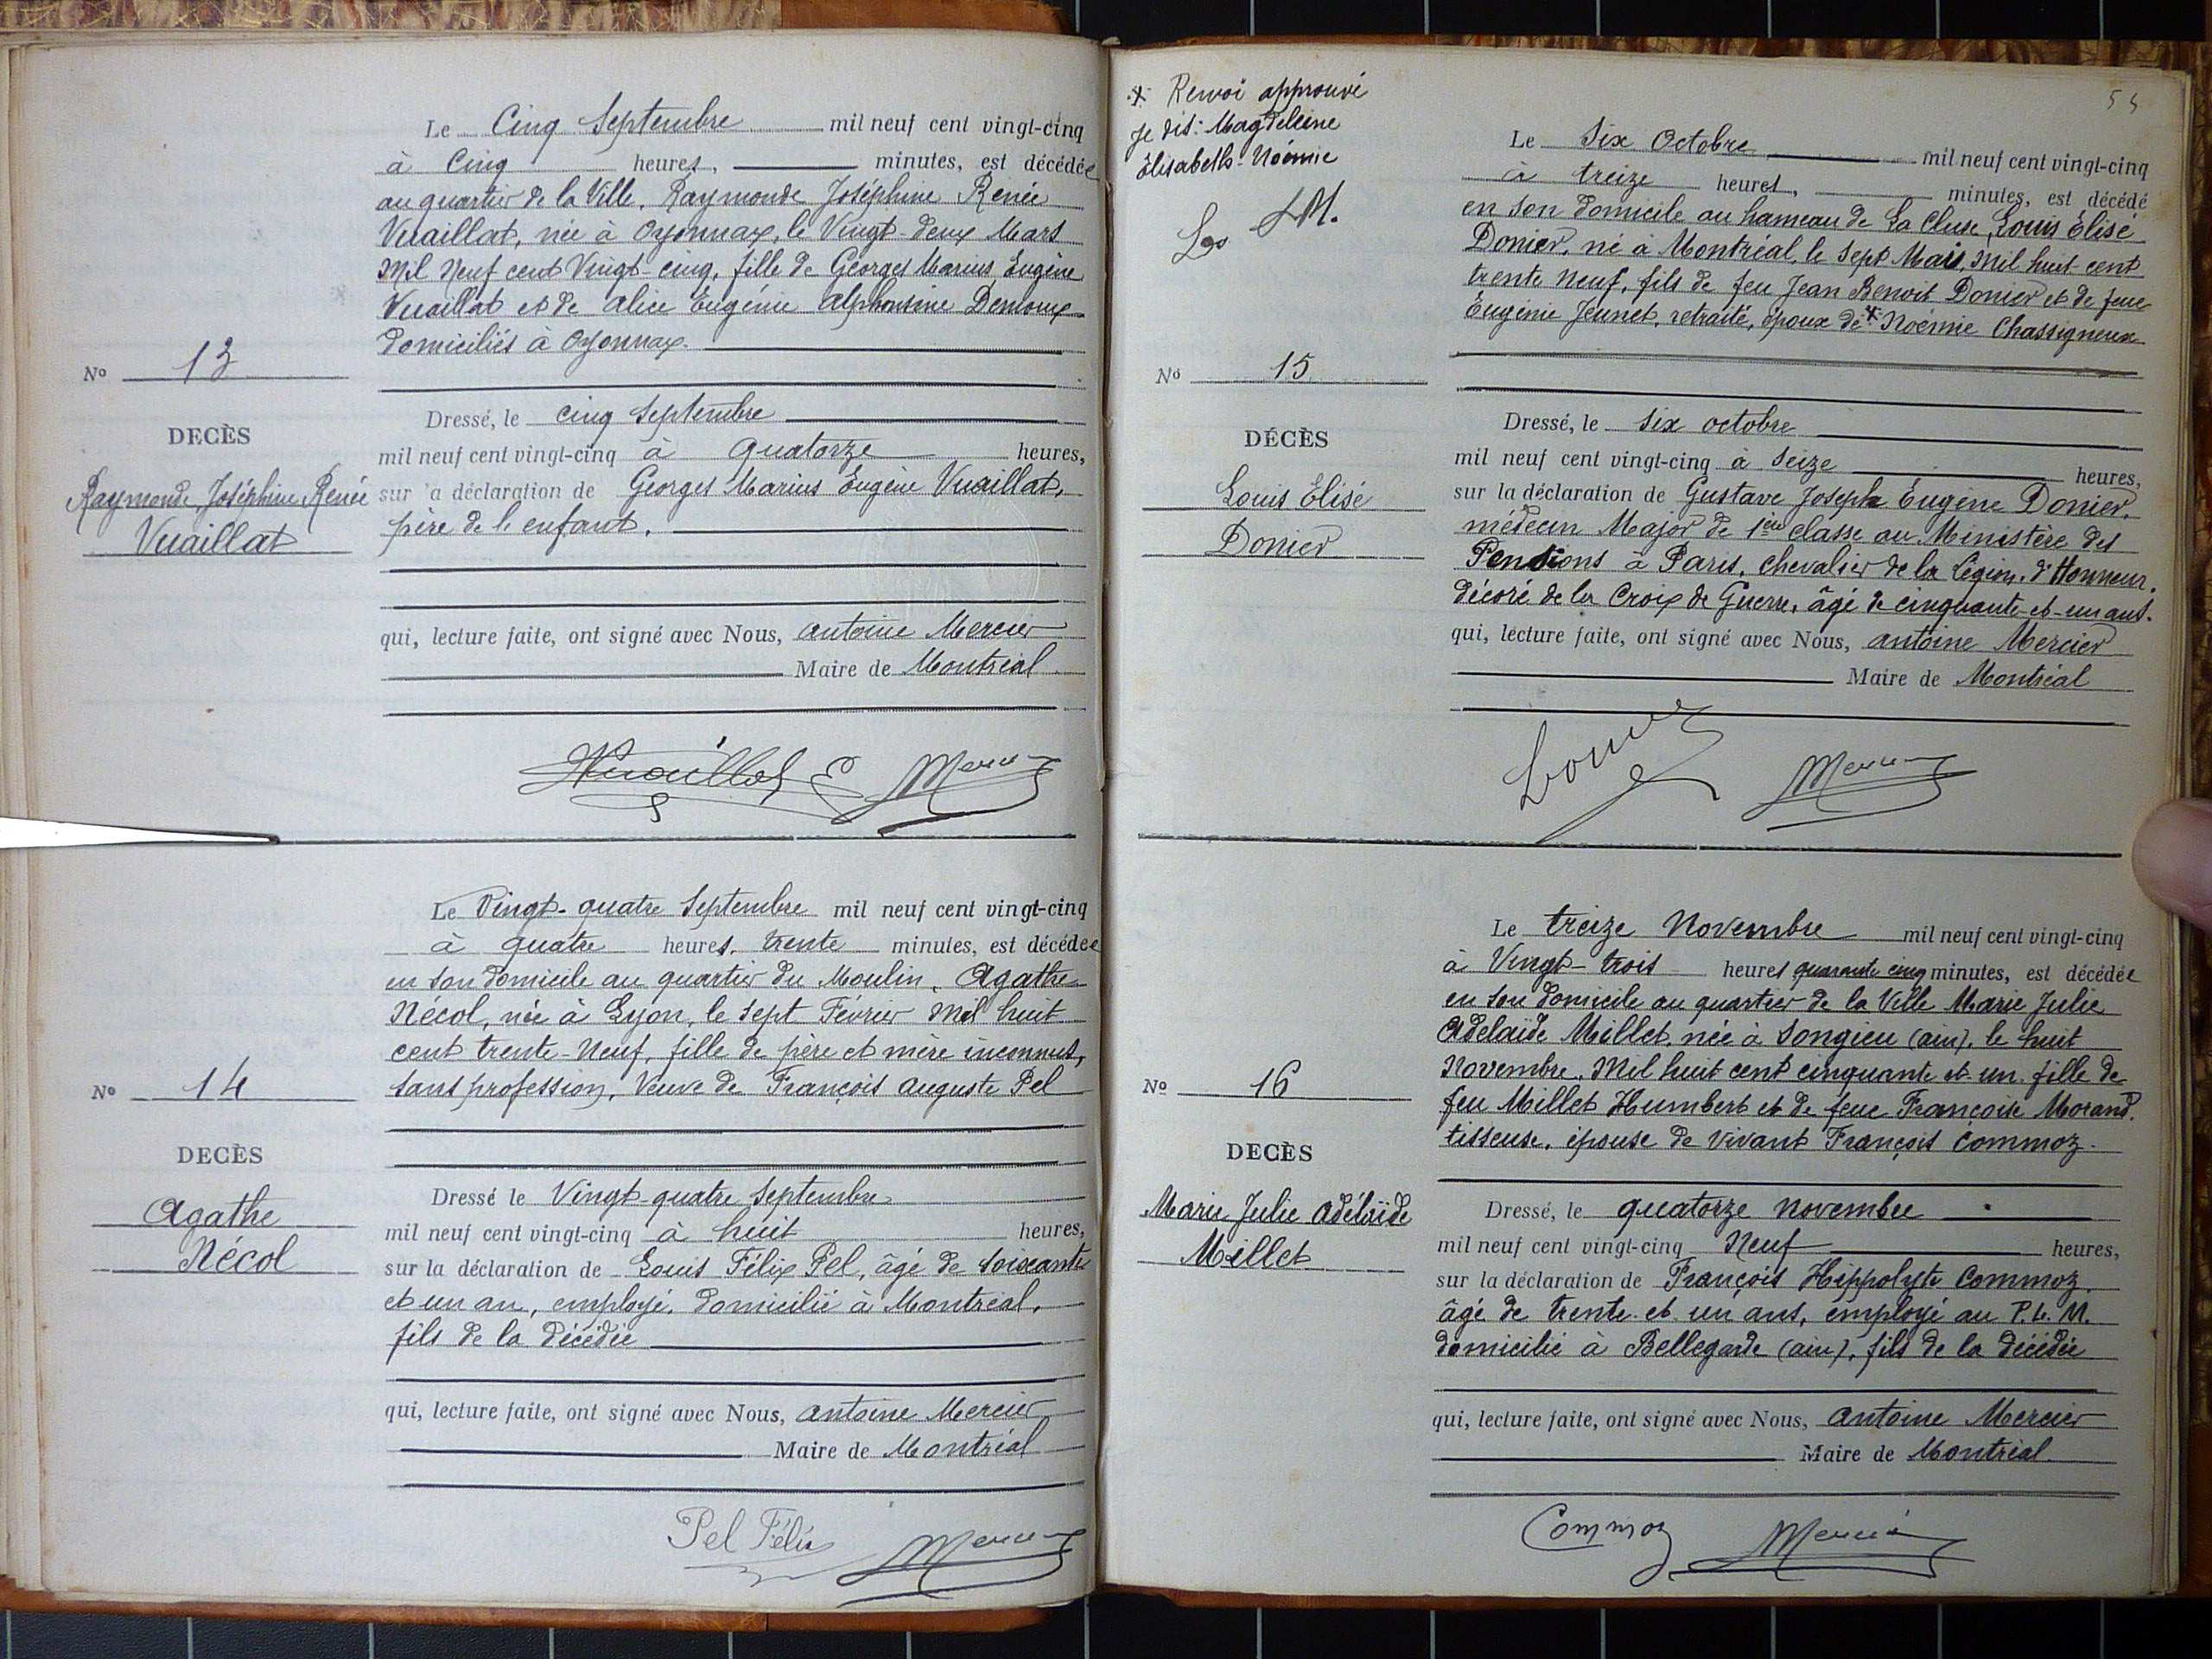 Le Cinq Septembre mil neuf cent vingt-cinq
à Cinq heures, minutes, est décédée
au quartier de la Ville, Raymonde Joséphine Renée
Vuaillat, née à Oyonnax, le Vingt-deux Mars
Mil Neuf cent Vingt-cinq, fille de Georges Marius Eugène
Vuaillat et de Alice Eugénie Alphonsine
domiciliés à Oyonnax.
No 13
DECÈS
Raymonde Joséphine Renée
Vuaillat
Dressé, le cinq Septembre
mil neuf cent vingt-cinq à quatorze heures,
sur la déclaration de Georges Marius Eugène Vuaillat,
père de l'enfant,
qui, lecture faite, ont signé avec Nous, Antoine Mercier
Maire de Montréal
Vuaillat E Mercier
Le Vingt-quatre Septembre mil neuf cent vingt-cinq
à quatre heures, trente minutes, est décédée
en son domicile au quartier du Moulin, Agathe
Nécol, née à Lyon, le sept Février Mil huit
cent trente-Neuf, fille de père et mère inconnus,
sans profession, Veuve de François Auguste Pel
No 14
DECÈS
Agathe
Nécol
Dressé le Vingt-quatre Septembre
mil neuf cent vingt-cinq à huit heures,
sur la déclaration de Louis Félix Pel, âgé de soixante
et un an, employé, domicilié à Montréal,
fils de la décédée
qui, lecture faite, ont signé avec Nous, Antoine Mercier
Maire de Montréal
Pel Félix Mercier
54
* Renvoi approuvé
je dis: Magdeleine
Elisabeth-Noémie
Le Six Octobre mil neuf cent vingt-cinq
à treize heures, minutes, est décédé
en son domicile au hameau de La Cluse, Louis Élisé
Donier, né à Montréal, le sept Mai, Mil huit-cent
trente neuf, fils de feu Jean Benoit Donier et de feue
Eugénie Jeunet, retraité, époux de * Noémie Chassigneux
No 15
DÉCÈS
Louis Élisé
Donier
Dressé, le six octobre
mil neuf cent vingt-cinq à seize heures,
sur la déclaration de Gustave Joseph Eugène Donier,
médecin Major de 1ère classe au Ministère des
Pensions à Paris, chevalier de la Légion d'Honneur,
décoré de la Croix de Guerre, âgé de cinquante-et-un ans.
qui, lecture faite, ont signé avec Nous, Antoine Mercier
Maire de Montréal
Donier Mercier
Le treize Novembre mil neuf cent vingt-cinq
à Vingt-trois heures quarante cinq minutes, est décédée
en son domicile au quartier de la Ville Marie Julie
Adelaïde Millet, née à Songieu (ain), le huit
Novembre, Mil huit cent cinquante et un, fille de
feu Millet Humbert et de feue Françoise Morand,
tisseuse, épouse de Vivant François Commoz.
No 16
DECÈS
Marie Julie Adélaïde
Millet
Dressé, le quatorze novembre
mil neuf cent vingt-cinq Neuf heures,
sur la déclaration de François Hippolyte Commoz,
âgé de trente et un ans, employé au P.L.M.
domicilié à Bellegarde (ain), fils de la décédée
qui, lecture faite, ont signé avec Nous, Antoine Mercier
Maire de Montréal.
Commoz Mercier